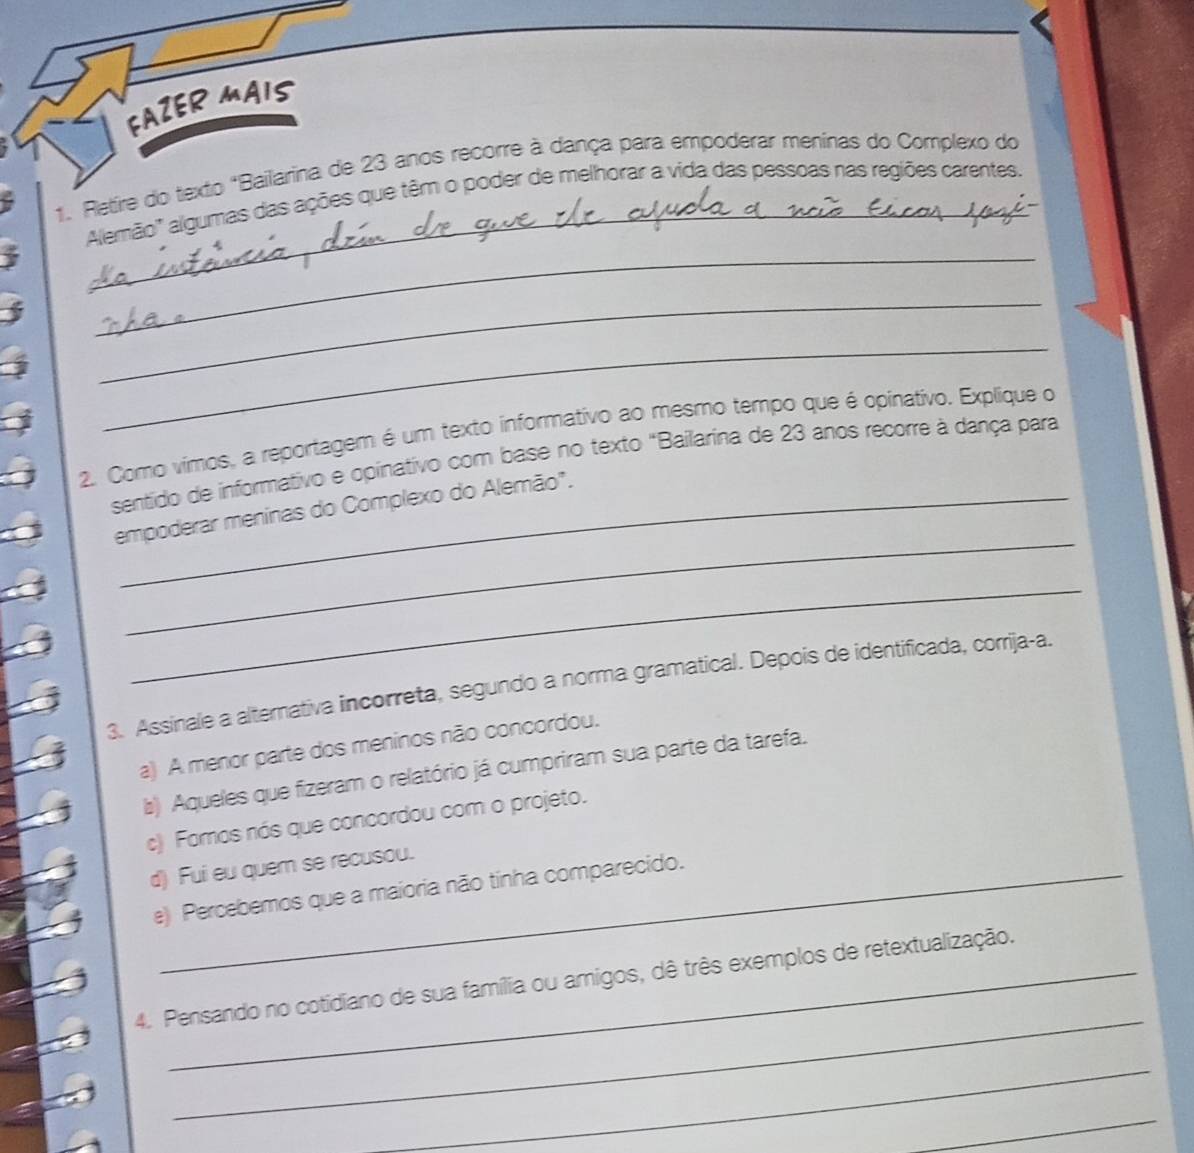 FAZER MAIS
1. Retire do texto "Bailarina de 23 anos recorre à dança para empoderar meninas do Complexo do
Alemão" algumas das ações que têm o poder de melhorar a vida das pessoas nas regiões carentes.
de que ele ajuda a não
2. Como vimos, a reportagem é um texto informativo ao mesmo tempo que é opinativo. Explique o
sentido de informativo e opinativo com base no texto "Bailarina de 23 anos recorre à dança para
empoderar meninas do Complexo do Alemão".
3. Assinale a alternativa incorreta, segundo a norma gramatical. Depois de identificada, corrija-a.
a) A menor parte dos meninos não concordou.
b) Aqueles que fizeram o relatório já cumpriram sua parte da tarefa.
c) Fomos nós que concordou com o projeto.
d) Fui eu quem se recusou.
e) Percebemos que a maioria não tinha comparecido.
4. Pensando no cotidiano de sua família ou amigos, dê três exemplos de retextualização.